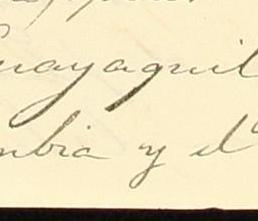 uayaquil
mbia y el